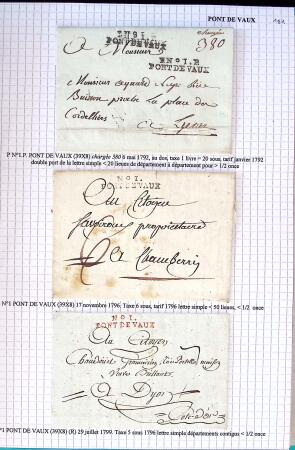 PONT DE VAUX
chargée
380
P Nº1.P.
PONT DE VAUX
P Nº1.P.
PONT DE VAUX
A Monsieur
Monsieur
la place des
Cordelliers
A Lyon
P Nº1.P. PONT DE VAUX (39X8) chargée 380 6 mai 1792, au dos, taxe 1 livre = 20 sous, tarif janvier 1792
double port de la lettre simple < 20 lieues de département à département pour > 1/2 once
Nº1.
PONT DE VAUX
Au Citoyen
propriétaire
A Chamberri
Nº1 PONT DE VAUX (39X8) 17 novembre 1796, Taxe 6 sous, tarif 1796 lettre simple < 50 lieues, < 1/2 once
Nº1.
PONT DE VAUX
Au Citoyen
A Dijon
Côte d'or
º1 PONT DE VAUX (39X8) (R) 29 juillet 1799. Taxe 5 sous 1796 lettre simple départements contigus < 1/2 once